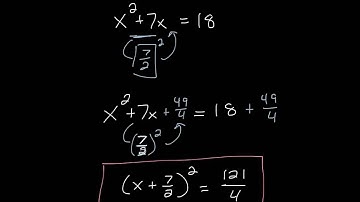 x² + 7x = 18
(7/2)²
x² + 7x + 49/4 = 18 + 49/4
(7/2)²
(x + 7/2)² = 121/4